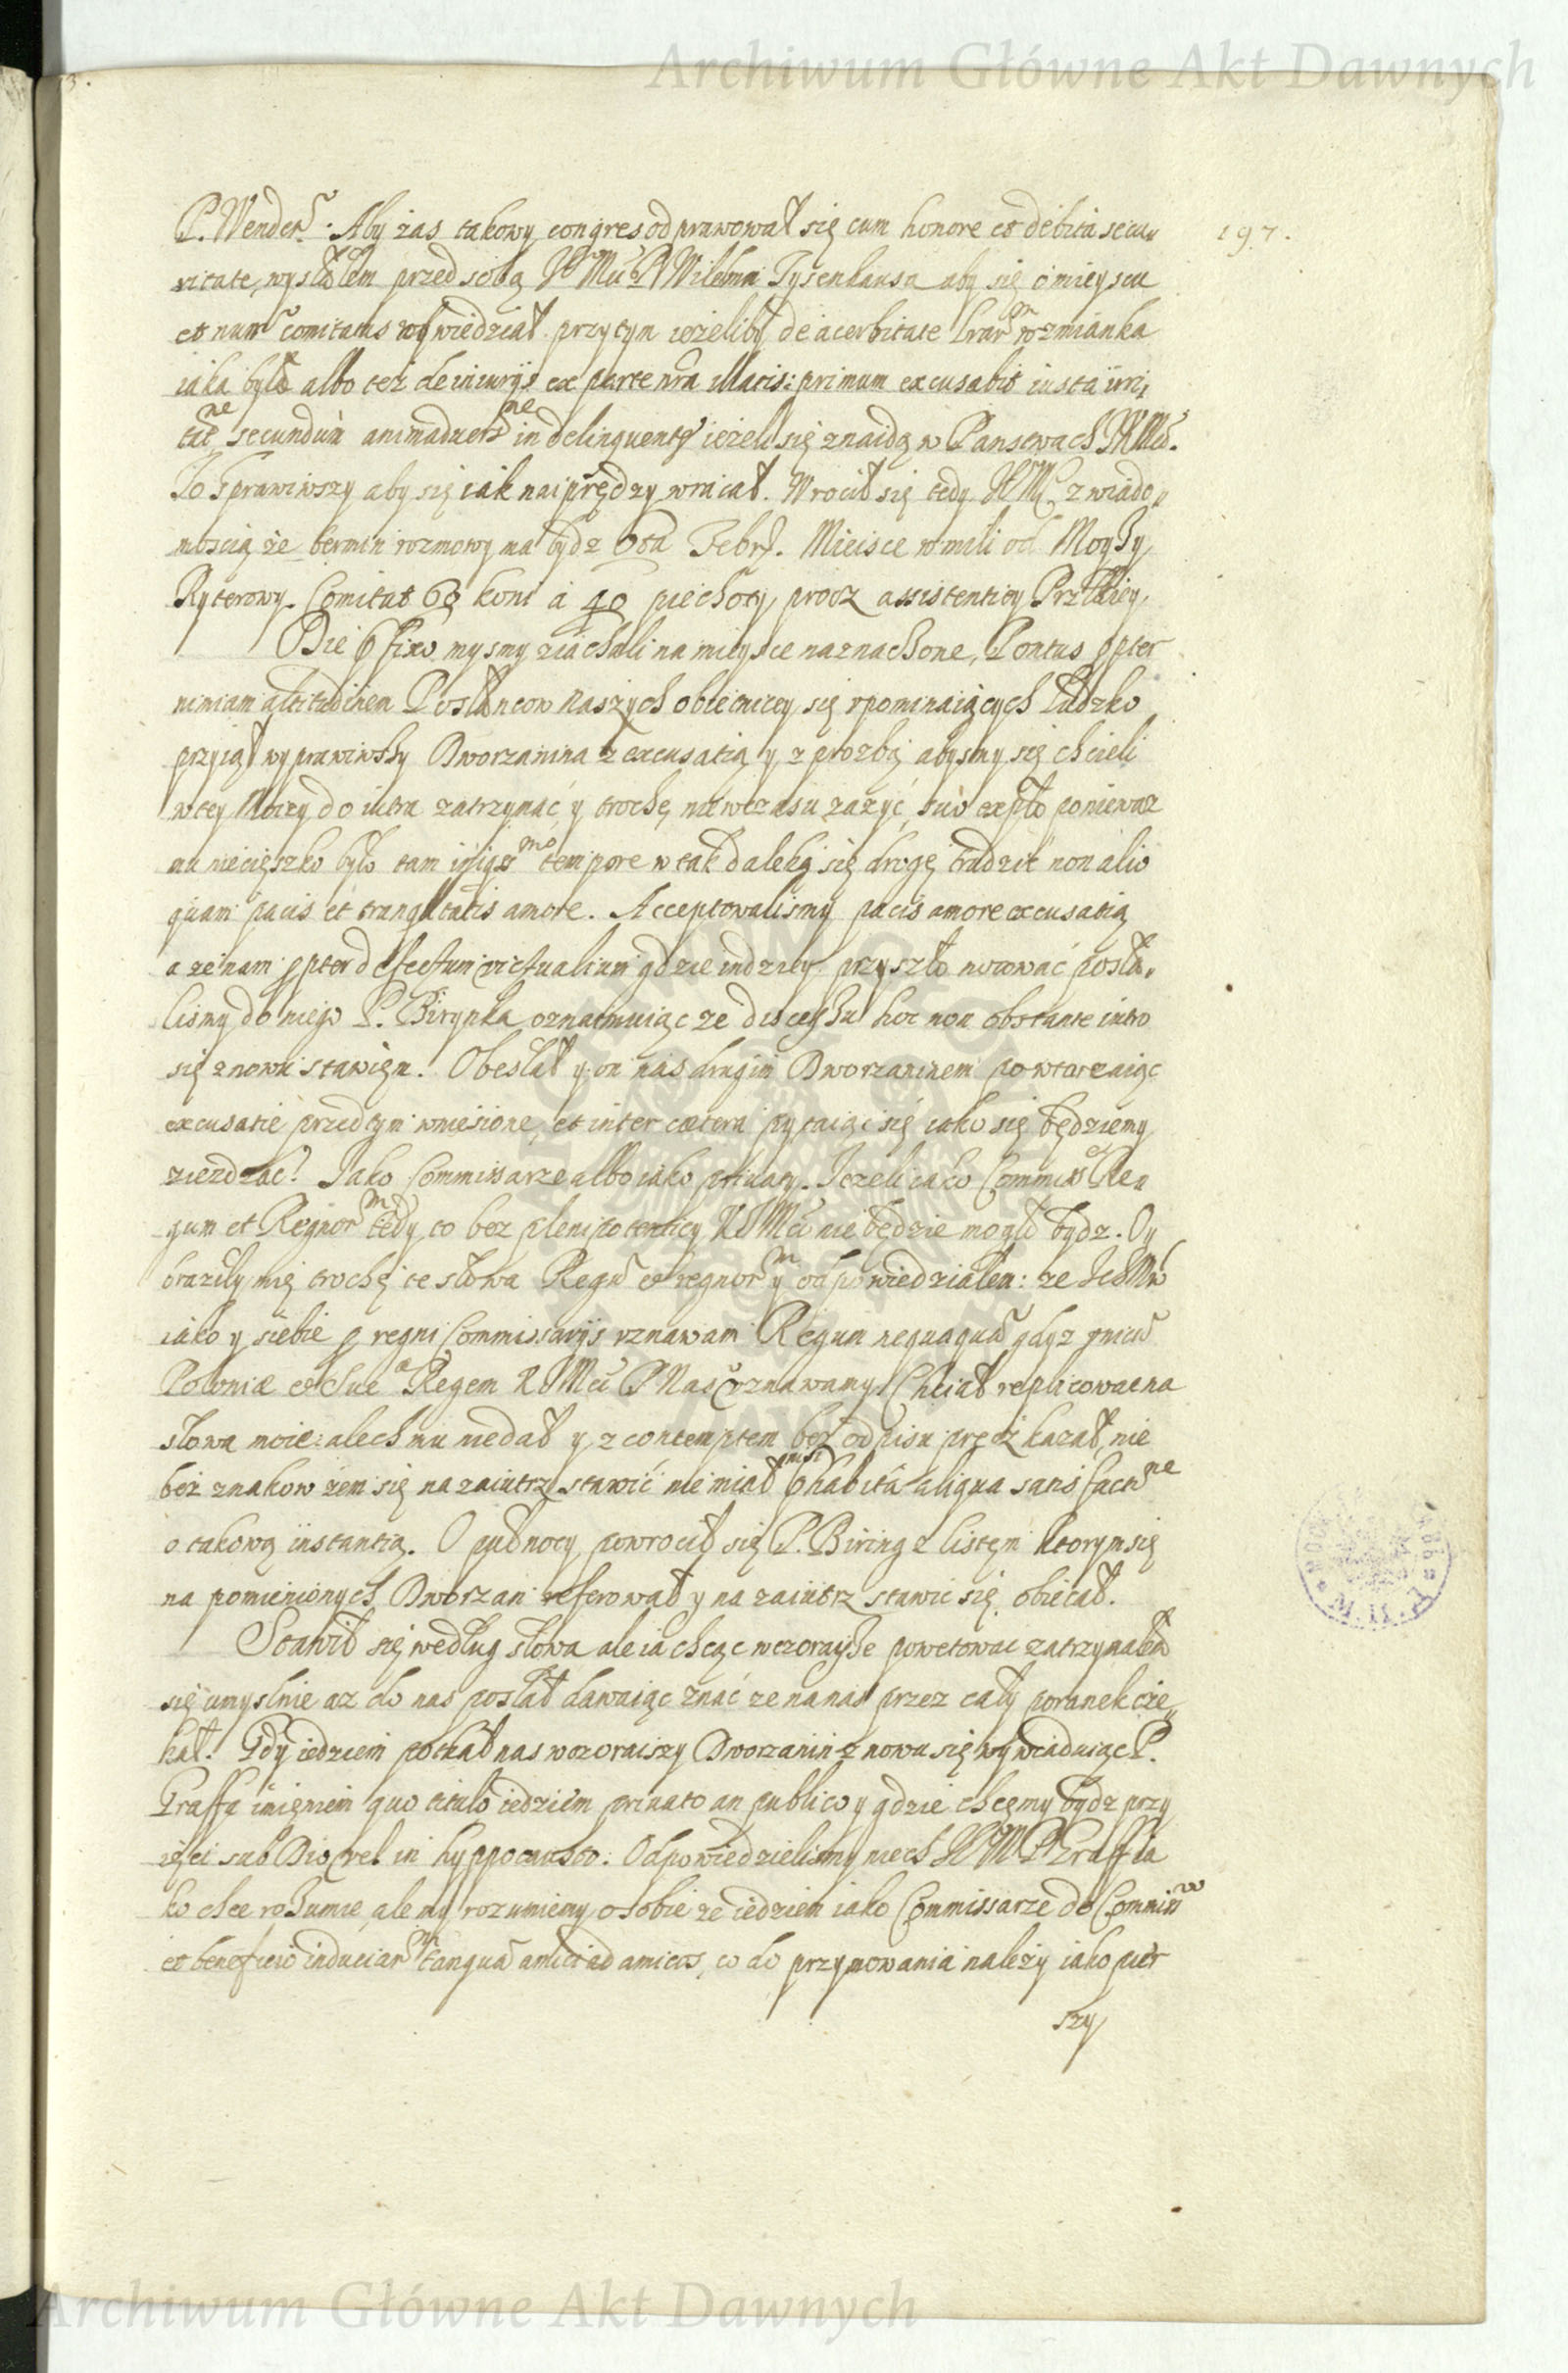 Archiwum Główne Akt Dawnych
197.
P. Wender. Aby zas takowy congres odprawował się cum honore et debita secu„
ritate, wysłałem przed sobą JoMci P. Wilelma Tysenhausa aby się o mieyscu
et num comitatus wywiedział przytym ieżeliby de acerbitate lrarm wzmianka
iaka była albo też de iniurijs ex parte nra illatis: primum excusabit iusta irri„
tatne secundum animaduersne in delinquentes ieżeli się znaidą w Panstwach JKMci.
To sprawiwszy aby się iak naiprędzy wracał. Wrocił się tedy JoMc z wiado„
moscią że termin rozmowy ma bydz 6ta Febr. Mieisce w mili od Moyzy
Ryterowy. Comitat 60 koni a 40 piechoty procz assistentiey
Die 6 fixo mysmy ziachali na mieysce naznaczone, Pontus ppter
nimiam altitudinem Posłancow naszych obietnicey się vpominaiących ludzko
przyiął wyprawiwszy Dworzanina z excusatią y z prozbą abysmy się chcieli
w tey Moizy do iutra zatrzymać y trochę niewczasu zażyć, suo explo poniewaz
mu nieciężko było tam iniqssmo tempore w tak daleką się drogę trudzić non alio
quam pacis et tranqlitatis amore. Acceptowalismy pacis amore excusatią
a że nam ppter defectum victualium gdzie indziey przyszło nocować posła„
lismy do niego P. Birynka oznaimuiąc że discessu hoc non obstante iutro
się znowu stawięm. Obesłał y on nas drugim Dworzaninem powtarzaiąc
excusatie przedtym wniesione, et inter cætera pytaiąc się iako się będziemy
ziezdzac? Jako Commissarze albo iako priuaty. Jezeli iako Commiss Re„
gum et Regnorm tedy to bez plenipotentiey KJMci nie będzie mogło bydz. Oy
braziły mię trochę te słowa Regu et regnorm y odpowiedziałem: że JeoMc
iako y siebie p regni Commissarijs vznawam Regum nequaquam gdyz vnicu
Poloniæ et Sueæ Regem KJMci P. Nas vznawamy. Chciał replicowac na
słowa moie: alech mu niedał y z contemptem bez odpisu precz kazał, nie
bez znakow żem się na zaiutrz stawić nie miał nisi phabita aliqua satisfactne
o takową instantią. O pułnocy powrocił się P. Biring z listem ktorym się
na pomienionych Dworzan referował y na zaiutrz stawic się obiecał.
Stawił się według słowa ale ia chcąc wczorayße powetowac zatrzymałem
się umyslnie az do nas posłał dawaiąc znać że na nas przez cały poranek cze„
kał. Gdy iedziem potkał nas wczoraiszy Dworzanin znowu się wywiaduiąc P.
Graffa imięniem quo titulo iedziem priuato an publico y gdzie chcemy bydz przy
ięci sub Dio vel in hyppocausto. Odpowiedzielismy niech JoM P. Graff ia
ko chce rozumie, ale my rozumiemy o sobie że iedziem iako Commissarze do Commiss
et beneficio induciarm tanquam amici ad amicos, co do przymowania należy iako pier
szy
Archiwum Główne Akt Dawnych